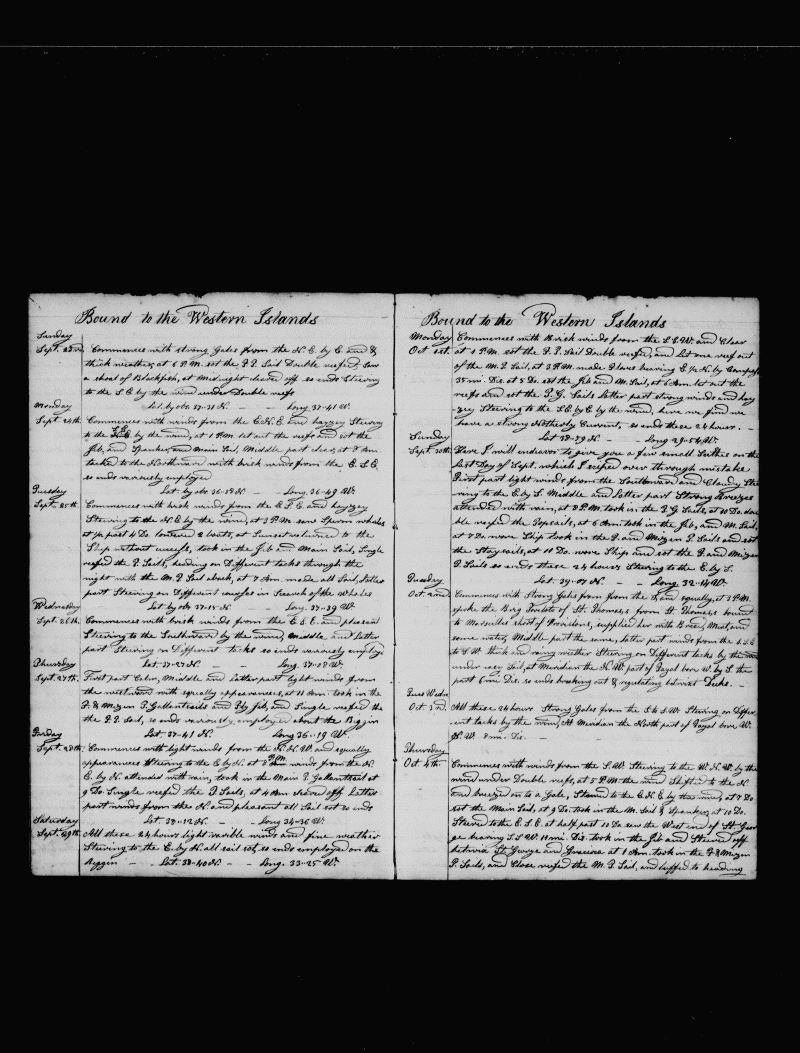 Bound to the Western Islands
Sunday
Sept. 23rd. Commences with strong Gales from the N.E. by E. and
thick weather, at 6 P.M. set the F.T. Sail Double reefed, Saw
a shoal of Blackfish, at Midnight cleared off so ends Steering
to the S.E. by the wind under Double reefs
Lat. by obs. 37-31 N. — — Long. 37-41 W.
Monday
Sept. 24th. Commences with winds from the E.N.E. and hazzey Steering
to the S.E. by the wind, at 1 P.M. let out the reefs and set the
Jib, and Spanker, and Main Sail, Middle part clear, at 8 Am.
tacked to the Northward with brisk winds from the E.S.E.
so ends variously employed
Lat. by obs. 36-58 N. — — Long. 36-49 W.
Tuesday
Sept. 25th. Commences with brisk winds from the E.S.E. and hazzey
Steering to the N.E. by the wind, at 3 P.M. saw Sperm whales
at ½ past 4 Do. lowered 2 boats, at Sunset returned to the
Ship without success, took in the Jib and Main Sail, Single
reefed the T. Sails, heading on Different tacks through the
night with the M.T. Sail aback, at 7 Am. made all Sail, Latter
part Steering on Different courses in Search of the whales
Lat. by obs. 37-15 N. — — Long. 37-39 W.
Wednesday
Sept. 26th. Commences with brisk winds from the E.S.E. and pleasant
Steering to the Southward by the wind, Middle and Latter
part Steering on Different tacks so ends variously employed
Lat. 37-27 N. — — Long. 37-08 W.
Thursday
Sept. 27th. First part Calm, Middle and Latter part light winds from
the westward with squally appearances, at 11 Am. took in the
F. & Mizen T. Gallantsails and Fly Jib, and Single reefed the
the F.T. Sail, so ends variously employed about the Riggin
Lat. 37-41 N. Long 36-19 W.
Friday
Sept. 28th. Commences with light winds from the N.N.W. and squally
appearances Steering to the E. by N. at 8 P.M. winds from the N.
E. by N. attended with rain, took in the Main T. Gallantsail at
9 Do. Single reefed the T. Sails, at 4 Am. cleared off Latter
part winds from the N. and pleasant all Sail set so ends
Lat. 38-12 N. — — Long 34-36 W.
Saturday
Sept. 29th. All these 24 hours light varible winds and fine weather
Steering to the E. by N. all sail set, so ends employed on the
Riggin — — Lat. 38-40 N. — — Long. 33-25 W.
Bound to the Western Islands
Monday
Oct 1st. Commences with Brisk winds from the S.S.W. and Clear
at 1 P.M. set the F.T. Sail Double reefed, and let one reef out
of the M.T. Sail, at 3 P.M. made Flores bearing E ½ N. by Compass
35 mi. Dis. at 5 Do. set the Jib and M. Sail, at 6 Am. let out the
reefs and set the T.G. Sails latter part strong winds and haz-
zey Steering to the S.E. by E. by the wind, here we find we
have a strong Northerly Current, so ends these 24 hours. —
Lat 38-39 N. — — Long 29-54 W.
Sunday
Sept. 30th. Here I will endeavor to give you a few small Scribes on the
last Day of Sept. which I skiped over through mistake
First part light winds from the Southward and Cloudy Stee-
ring to the E. by S. Middle and latter part Strong breezes
attended with rain, at 8 P.M. took in the T.G. Sails, at 10 Do. dou-
ble reefed the Topsails, at 6 Am. took in the Jib, and M. Sail,
at 7 Do. wore Ship took in the F. and Mizen T. Sails and set
the Staysails, at 11 Do. wore Ship and set the F. and Mizen
T. Sails so ends these 24 hours Steering to the E. by S.
Lat. 39-07 N. — — Long. 32-14 W.
Tuesday
Oct. 2nd Commences with Strong Gales from from the S. and squally, at 3 P.M.
spoke the Brig Trobets of St. Thomas, from St. Thomas bound
to Marseilles short of Provisions, supplied her with Bread, Meat, and
some water, Middle part the same, latter part winds from the S.S.E
to S.W. thick and rainy weather Steering on Different tacks by the wind
under easy Sail, at Meridian the N.W. part of Fayal bore W. by S. the
part 6 mi Dis. so ends breaking out & regulating betwixt Decks. —
Tues Wedn
Oct. 3rd. All these 24 hours Strong Gales from the S. to S.W. Steering on Differ-
ent tacks by the wind, At Meridian the North part of Fayal bore W.
S.W. 8 mi. Dis. —
Thursday
Oct 4th. Commences with winds from the S.W. Steering to the W.N.W. by the
wind under Double reefs, at 5 P.M. the wind Shifted to the N.
and breezed on to a Gale, Steered to the E.N.E. by the wind, at 7 Do
set the Main Sail, at 9 Do. took in the M. Sail & Spanker, at 10 Do.
Steered to the E.S.E. at half past 10 Do saw the West end of St. Geor-
ge bearing S.S.W. 11 mi. Dis. took in the Jib and Steered off
betwixt St. George and Graciosa at 1 Am. took in the F. & Mizen
T. Sails, and Close reefed the M.T. Sail, and luffed to heading